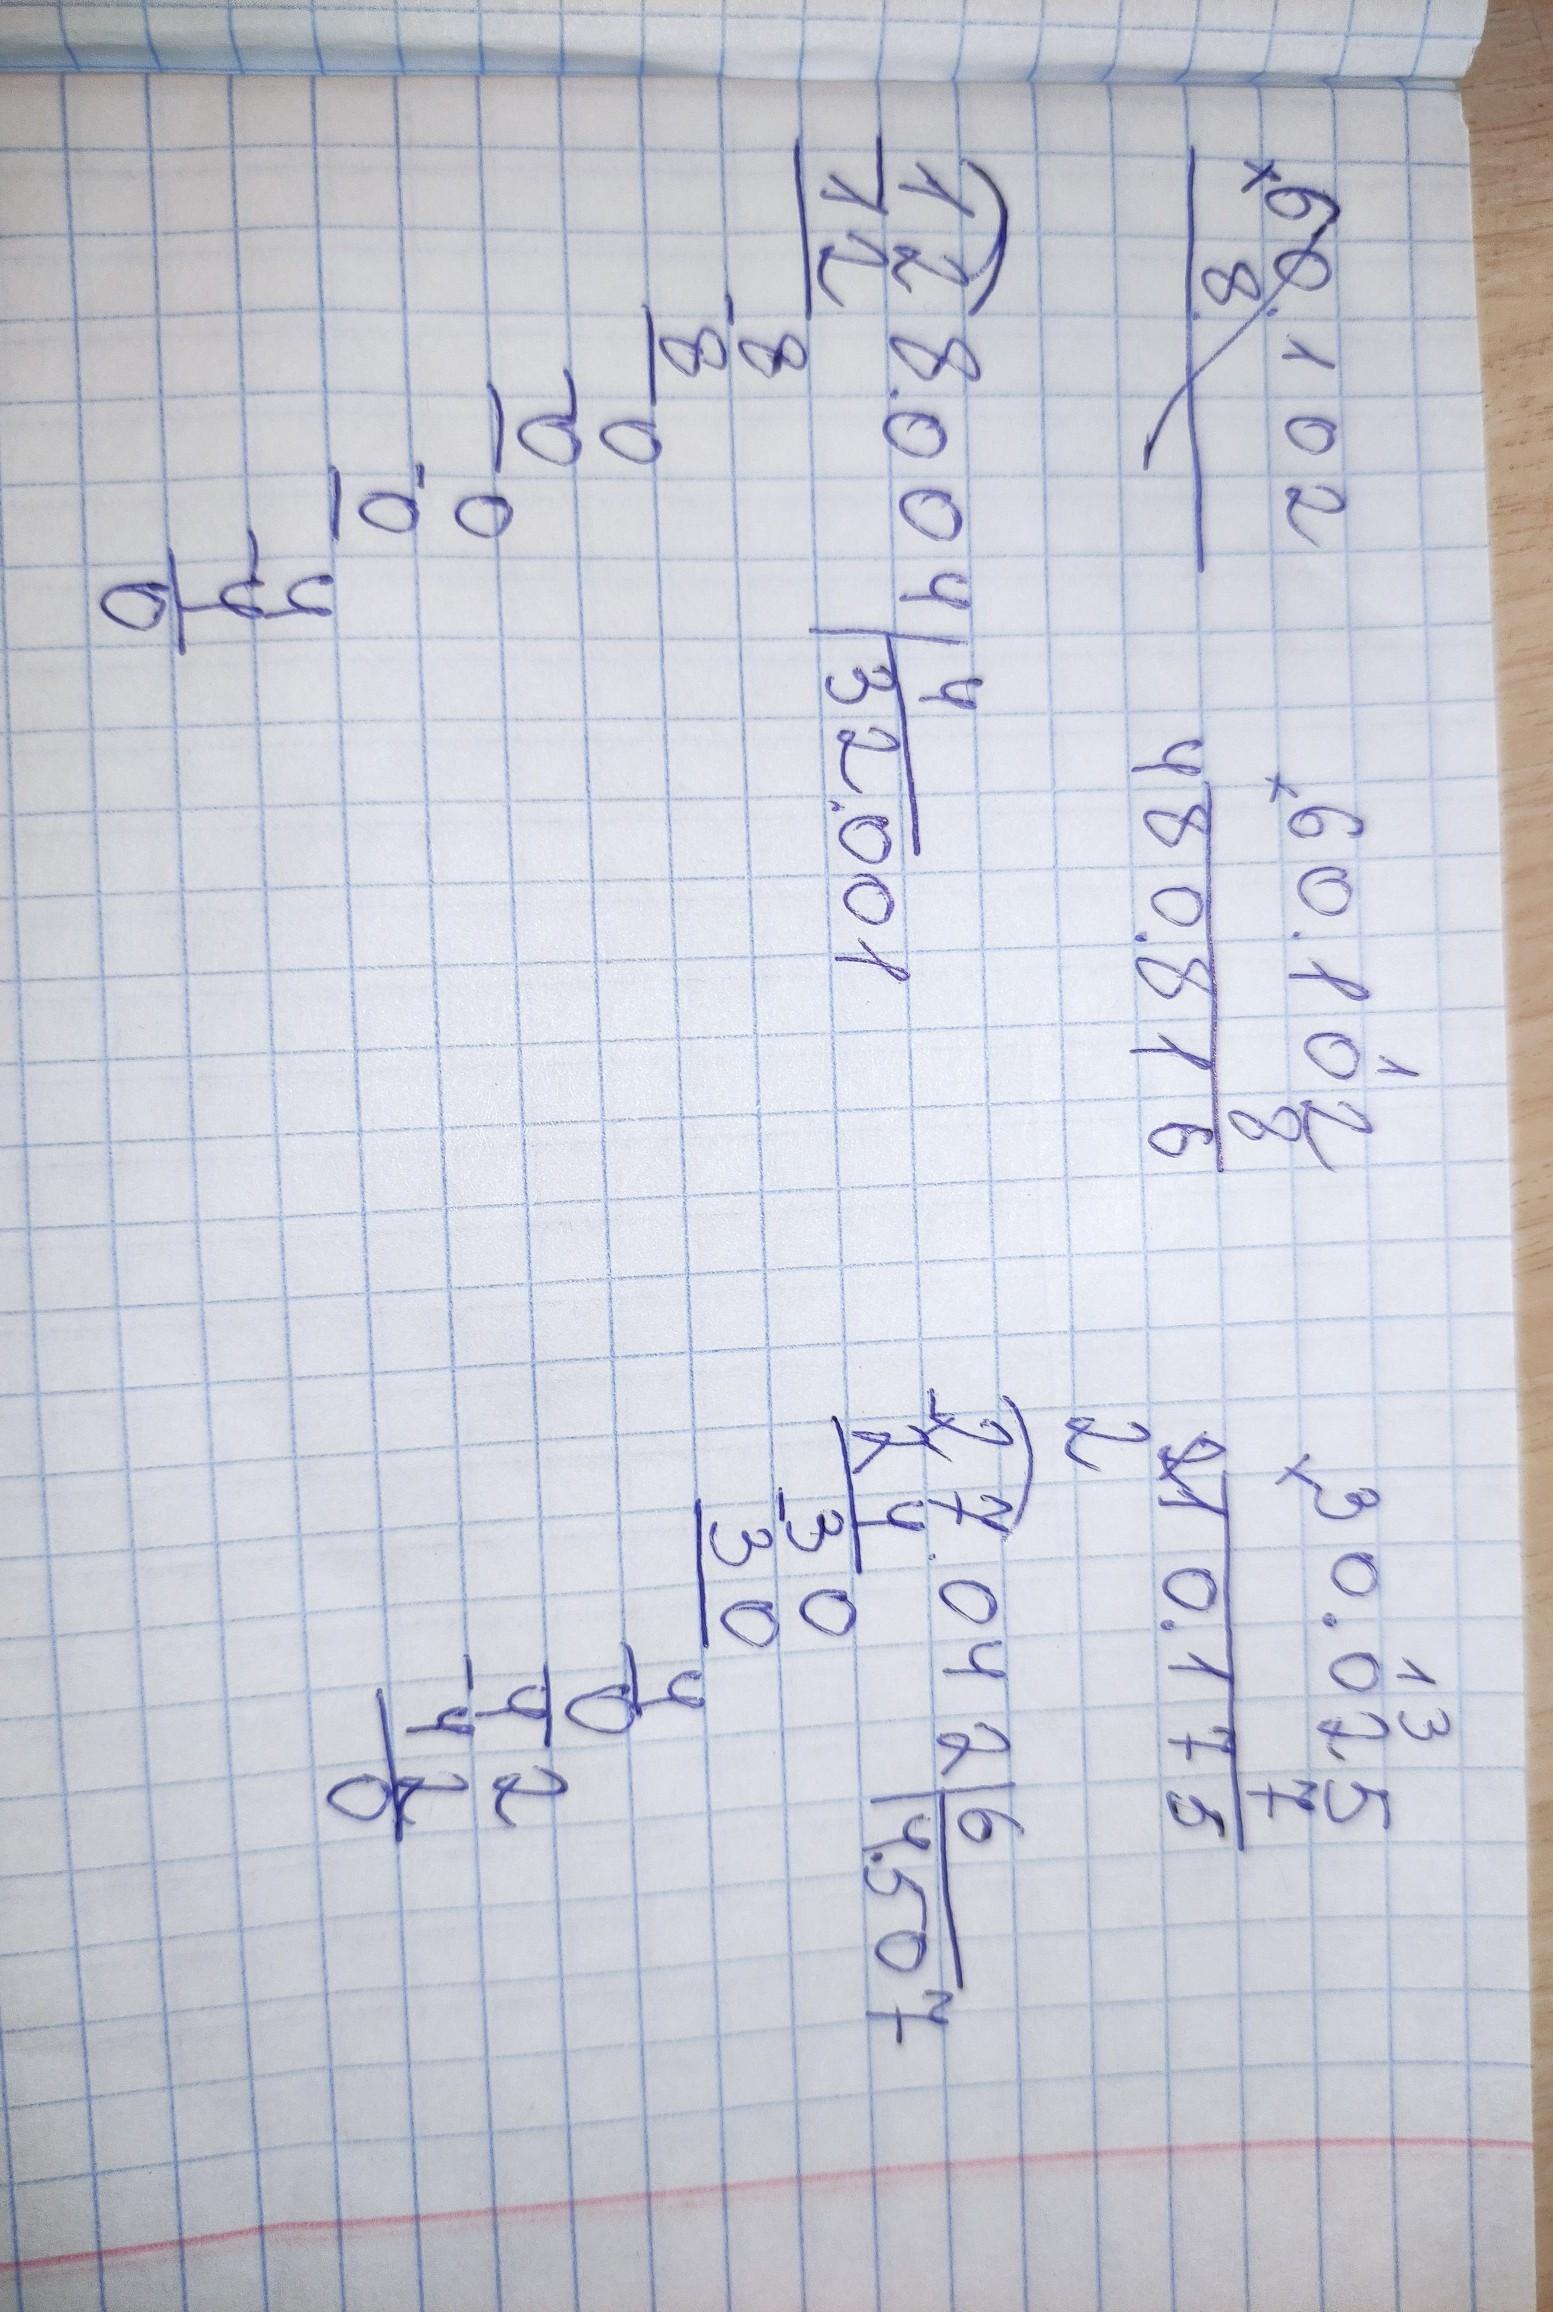 60.102
× 8
60.102 1
× 8
480.816
30.025 13
× 7
210.175
2
128.004 | 4
- 12 32.001
8
- 8
0
- 0
0
- 0
4
- 4
0
27.042 | 6
- 24 4.507
30
- 30
4
- 0
42
- 42
0